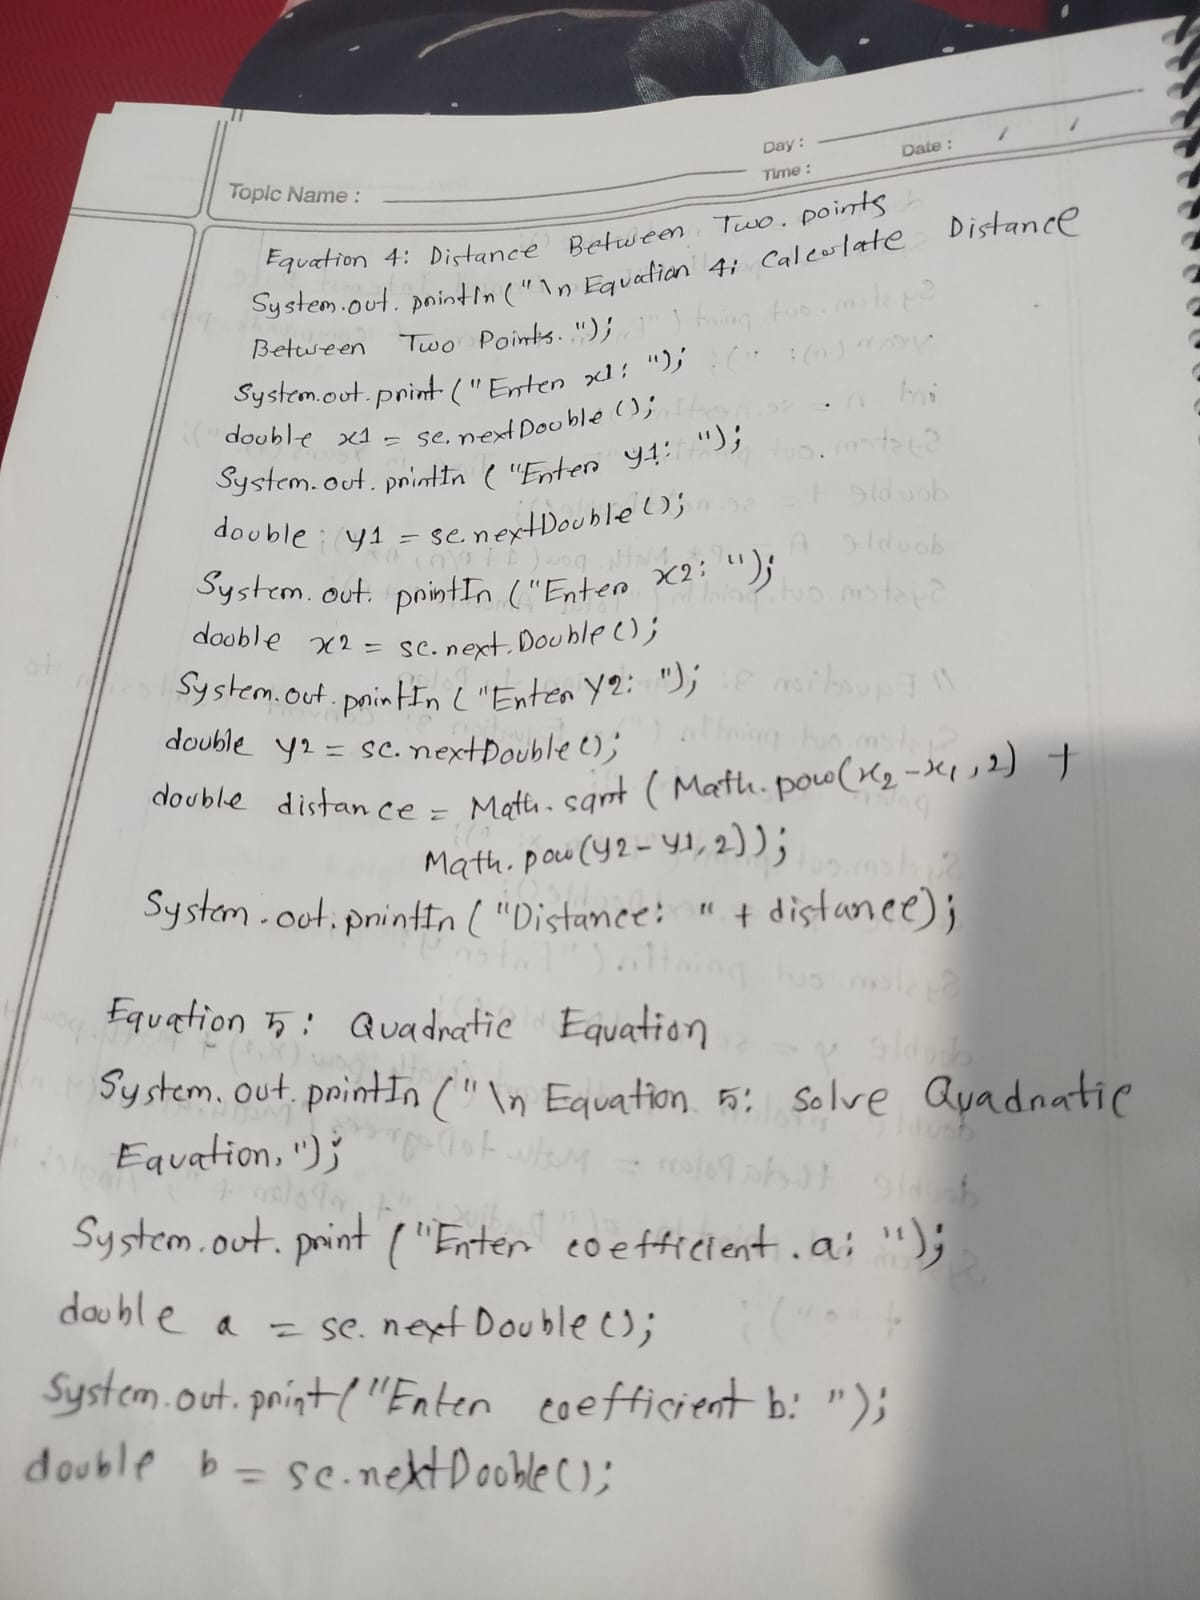 Day :
Time :
Date : / /
Topic Name :
Equation 4: Distance Between Two. points
System.out. println ("\n Equation 4: Calculate Distance
Between Two Points. ");
System.out.print ("Enter x1: ");
double x1 = sc.nextDouble ();
System.out. println ( "Enter y1: ");
double ; y1 = sc.nextDouble ();
System. out. println ("Enter x2: ");
double x2 = sc. next.Double ();
System.out.println ( "Enter Y2: ");
double y2 = sc. nextDouble ();
double distance = Math. sqrt ( Math. pow(x2-x1,2) +
Math. pow (y2-y1,2));
System.out.println ( "Distance: " + distance);
Equation 5: Quadratic Equation
System. out. println ("\n Equation 5: solve Quadratic
Equation. ");
System.out. print ("Enter coefficient .a: ");
double a = sc. nextDouble ();
System.out. print ("Enter coefficient b: ");
double b = sc.nextDouble ();